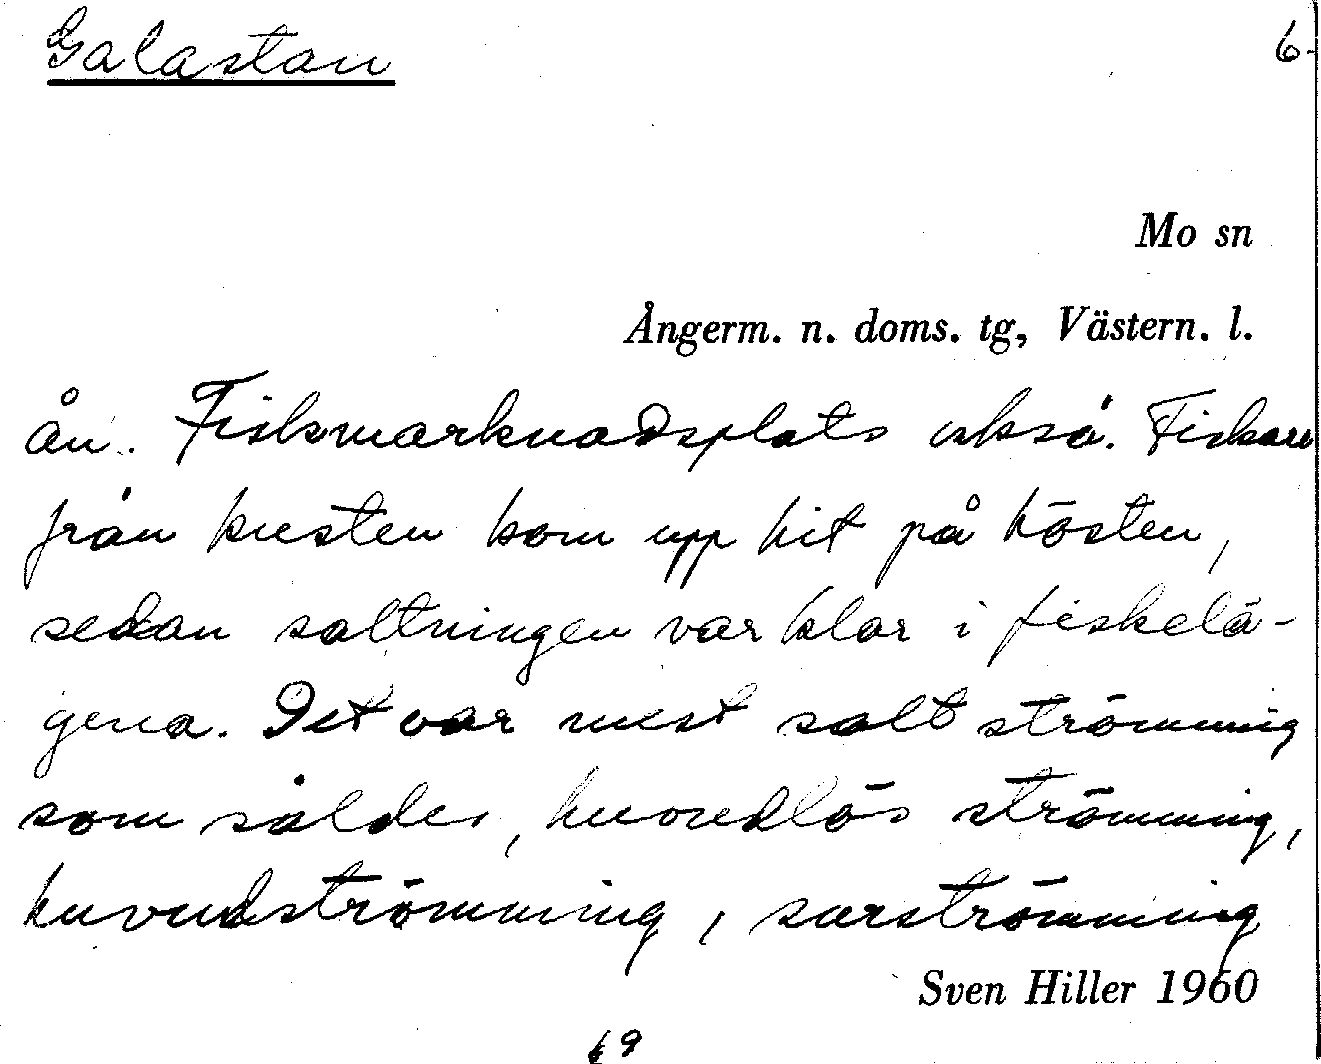 Galastan
6-
Mo sn
Ångerm. n. doms. tg, Västern. l.
ån. Fiskmarknadsplats också. Fiskare
från kusten kom upp hit på hösten,
sedan saltningen var klar i fiskelä-
gena. Det var mest salt strömming
som såldes, huvudlös strömming,
huvudströmming, surströmming
Sven Hiller 1960
69